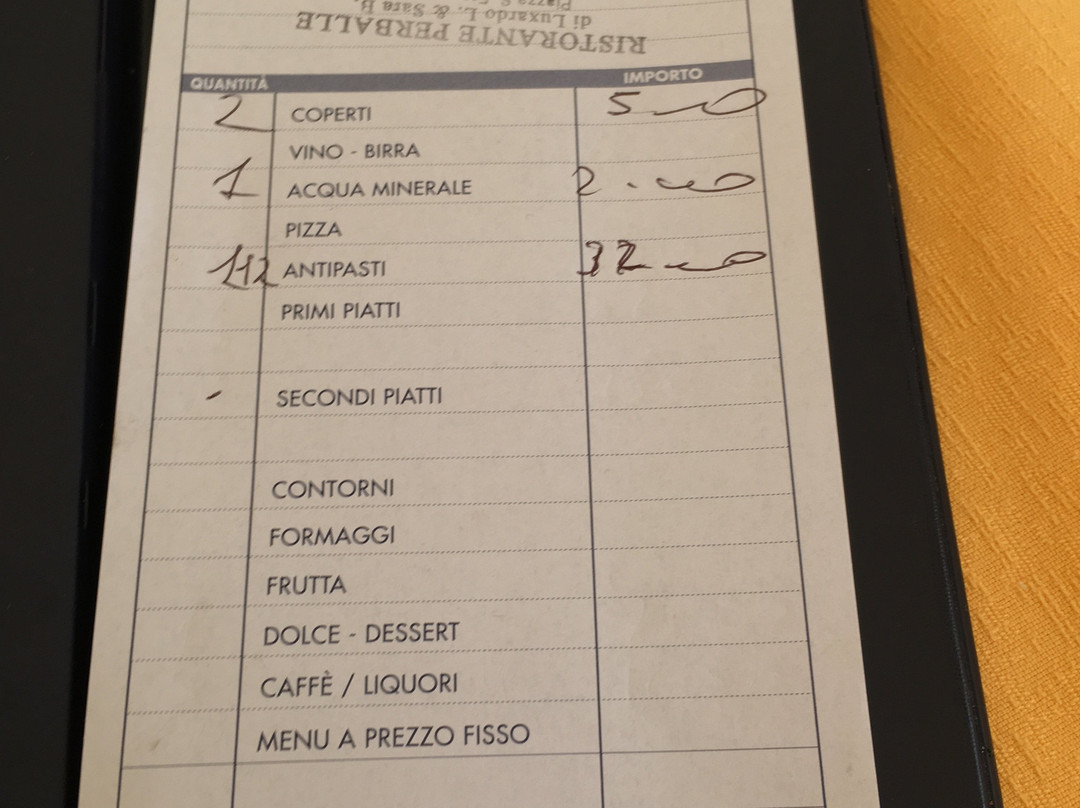 Piazza S.
di Luxardo L. & Sara B.
RISTORANTE PERBALLE
QUANTITÀ IMPORTO
2 COPERTI 5
VINO - BIRRA
1 ACQUA MINERALE 2.00
PIZZA
ANTIPASTI 32
PRIMI PIATTI
SECONDI PIATTI
CONTORNI
FORMAGGI
FRUTTA
DOLCE - DESSERT
CAFFÈ / LIQUORI
MENU A PREZZO FISSO